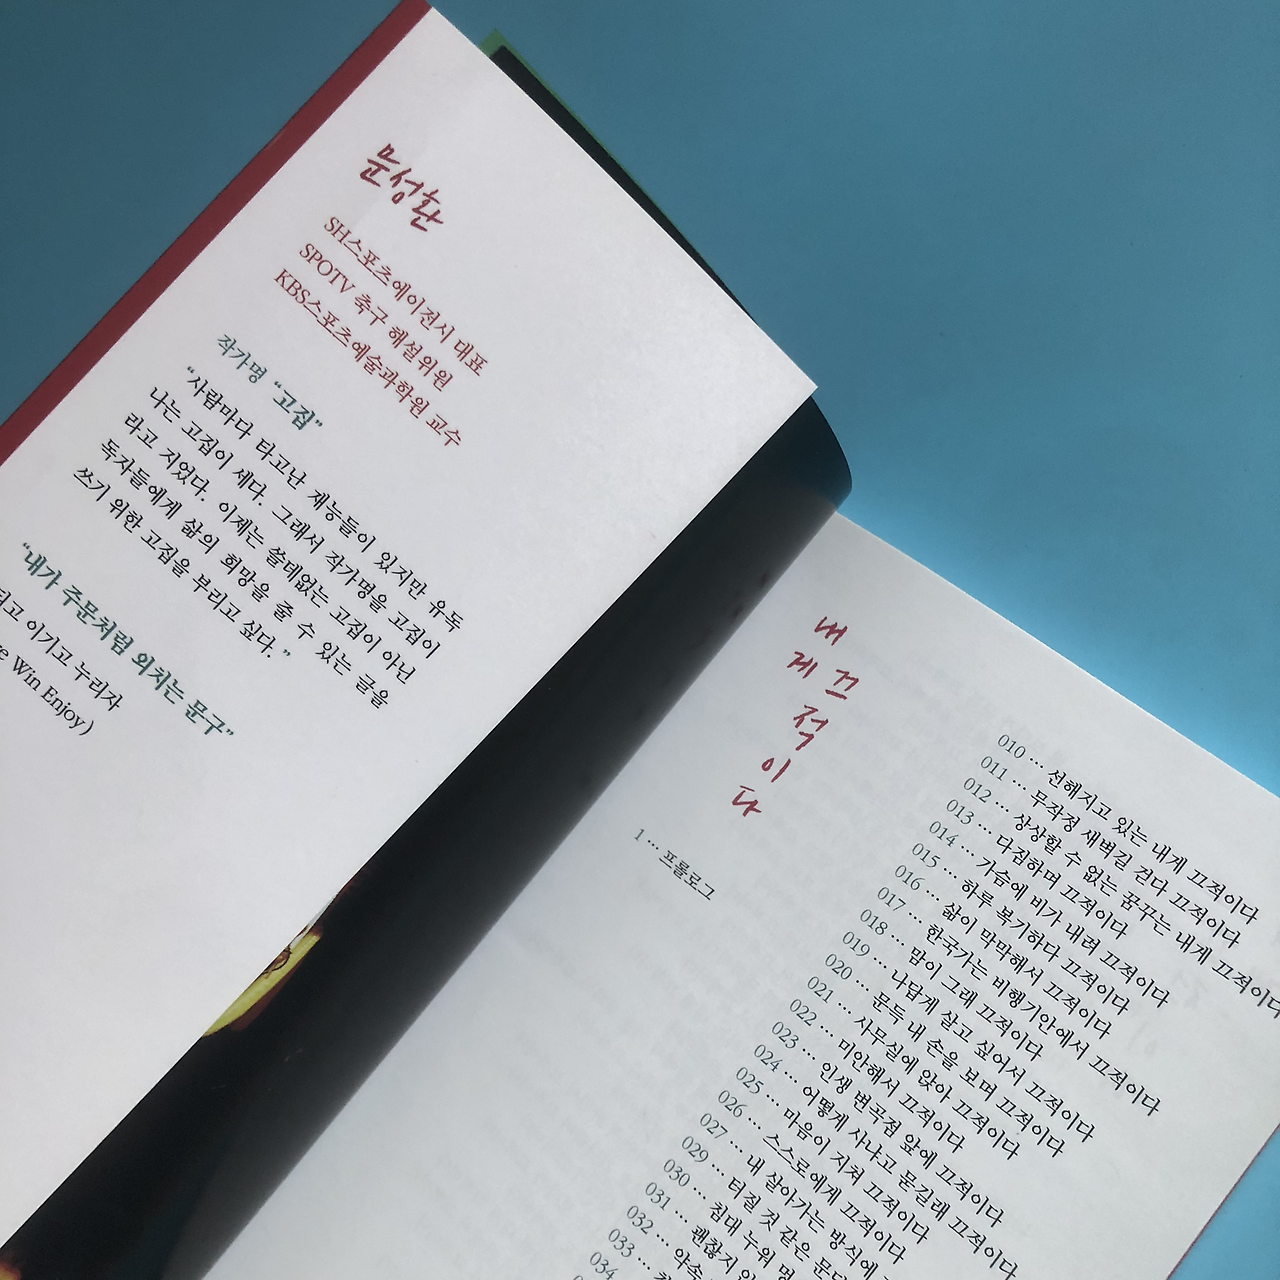 문성환
SH스포츠에이전시 대표
SPOTV 축구 해설위원
KBS스포츠예술과학원 교수
작가명 “고집”
“사람마다 타고난 재능들이 있지만 유독
나는 고집이 세다. 그래서 작가명을 고집이
라고 지었다. 이제는 쓸데없는 고집이 아닌
독자들에게 삶의 희망을 줄 수 있는 글을
쓰기 위한 고집을 부리고 싶다.”
“내가 주문처럼 외치는 문구”
이기고 누리자
Win Enjoy)
내
게 끄
적
이
다
1 … 프롤로그
010 … 선해지고 있는 내게 끄적이다
011 … 무작정 새벽길 걷다 끄적이다
012 … 상상할 수 없는 꿈꾸는 내게 끄적이다
013 … 다짐하며 끄적이다
014 … 가슴에 비가 내려 끄적이다
015 … 하루 복기하다 끄적이다
016 … 삶이 막막해서 끄적이다
017 … 한국가는 비행기안에서 끄적이다
018 … 맘이 그래 끄적이다
019 … 나답게 살고 싶어서 끄적이다
020 … 문득 내 손을 보며 끄적이다
021 … 사무실에 앉아 끄적이다
022 … 미안해서 끄적이다
023 … 인생 변곡점 앞에 끄적이다
024 … 어떻게 사냐고 묻길래 끄적이다
025 … 마음이 지쳐 끄적이다
026 … 스스로에게 끄적이다
027 … 내 살아가는 방식에
029 … 터질 것 같은
030 … 침대 누워
031 … 괜찮지
032 … 약속
033 …
034